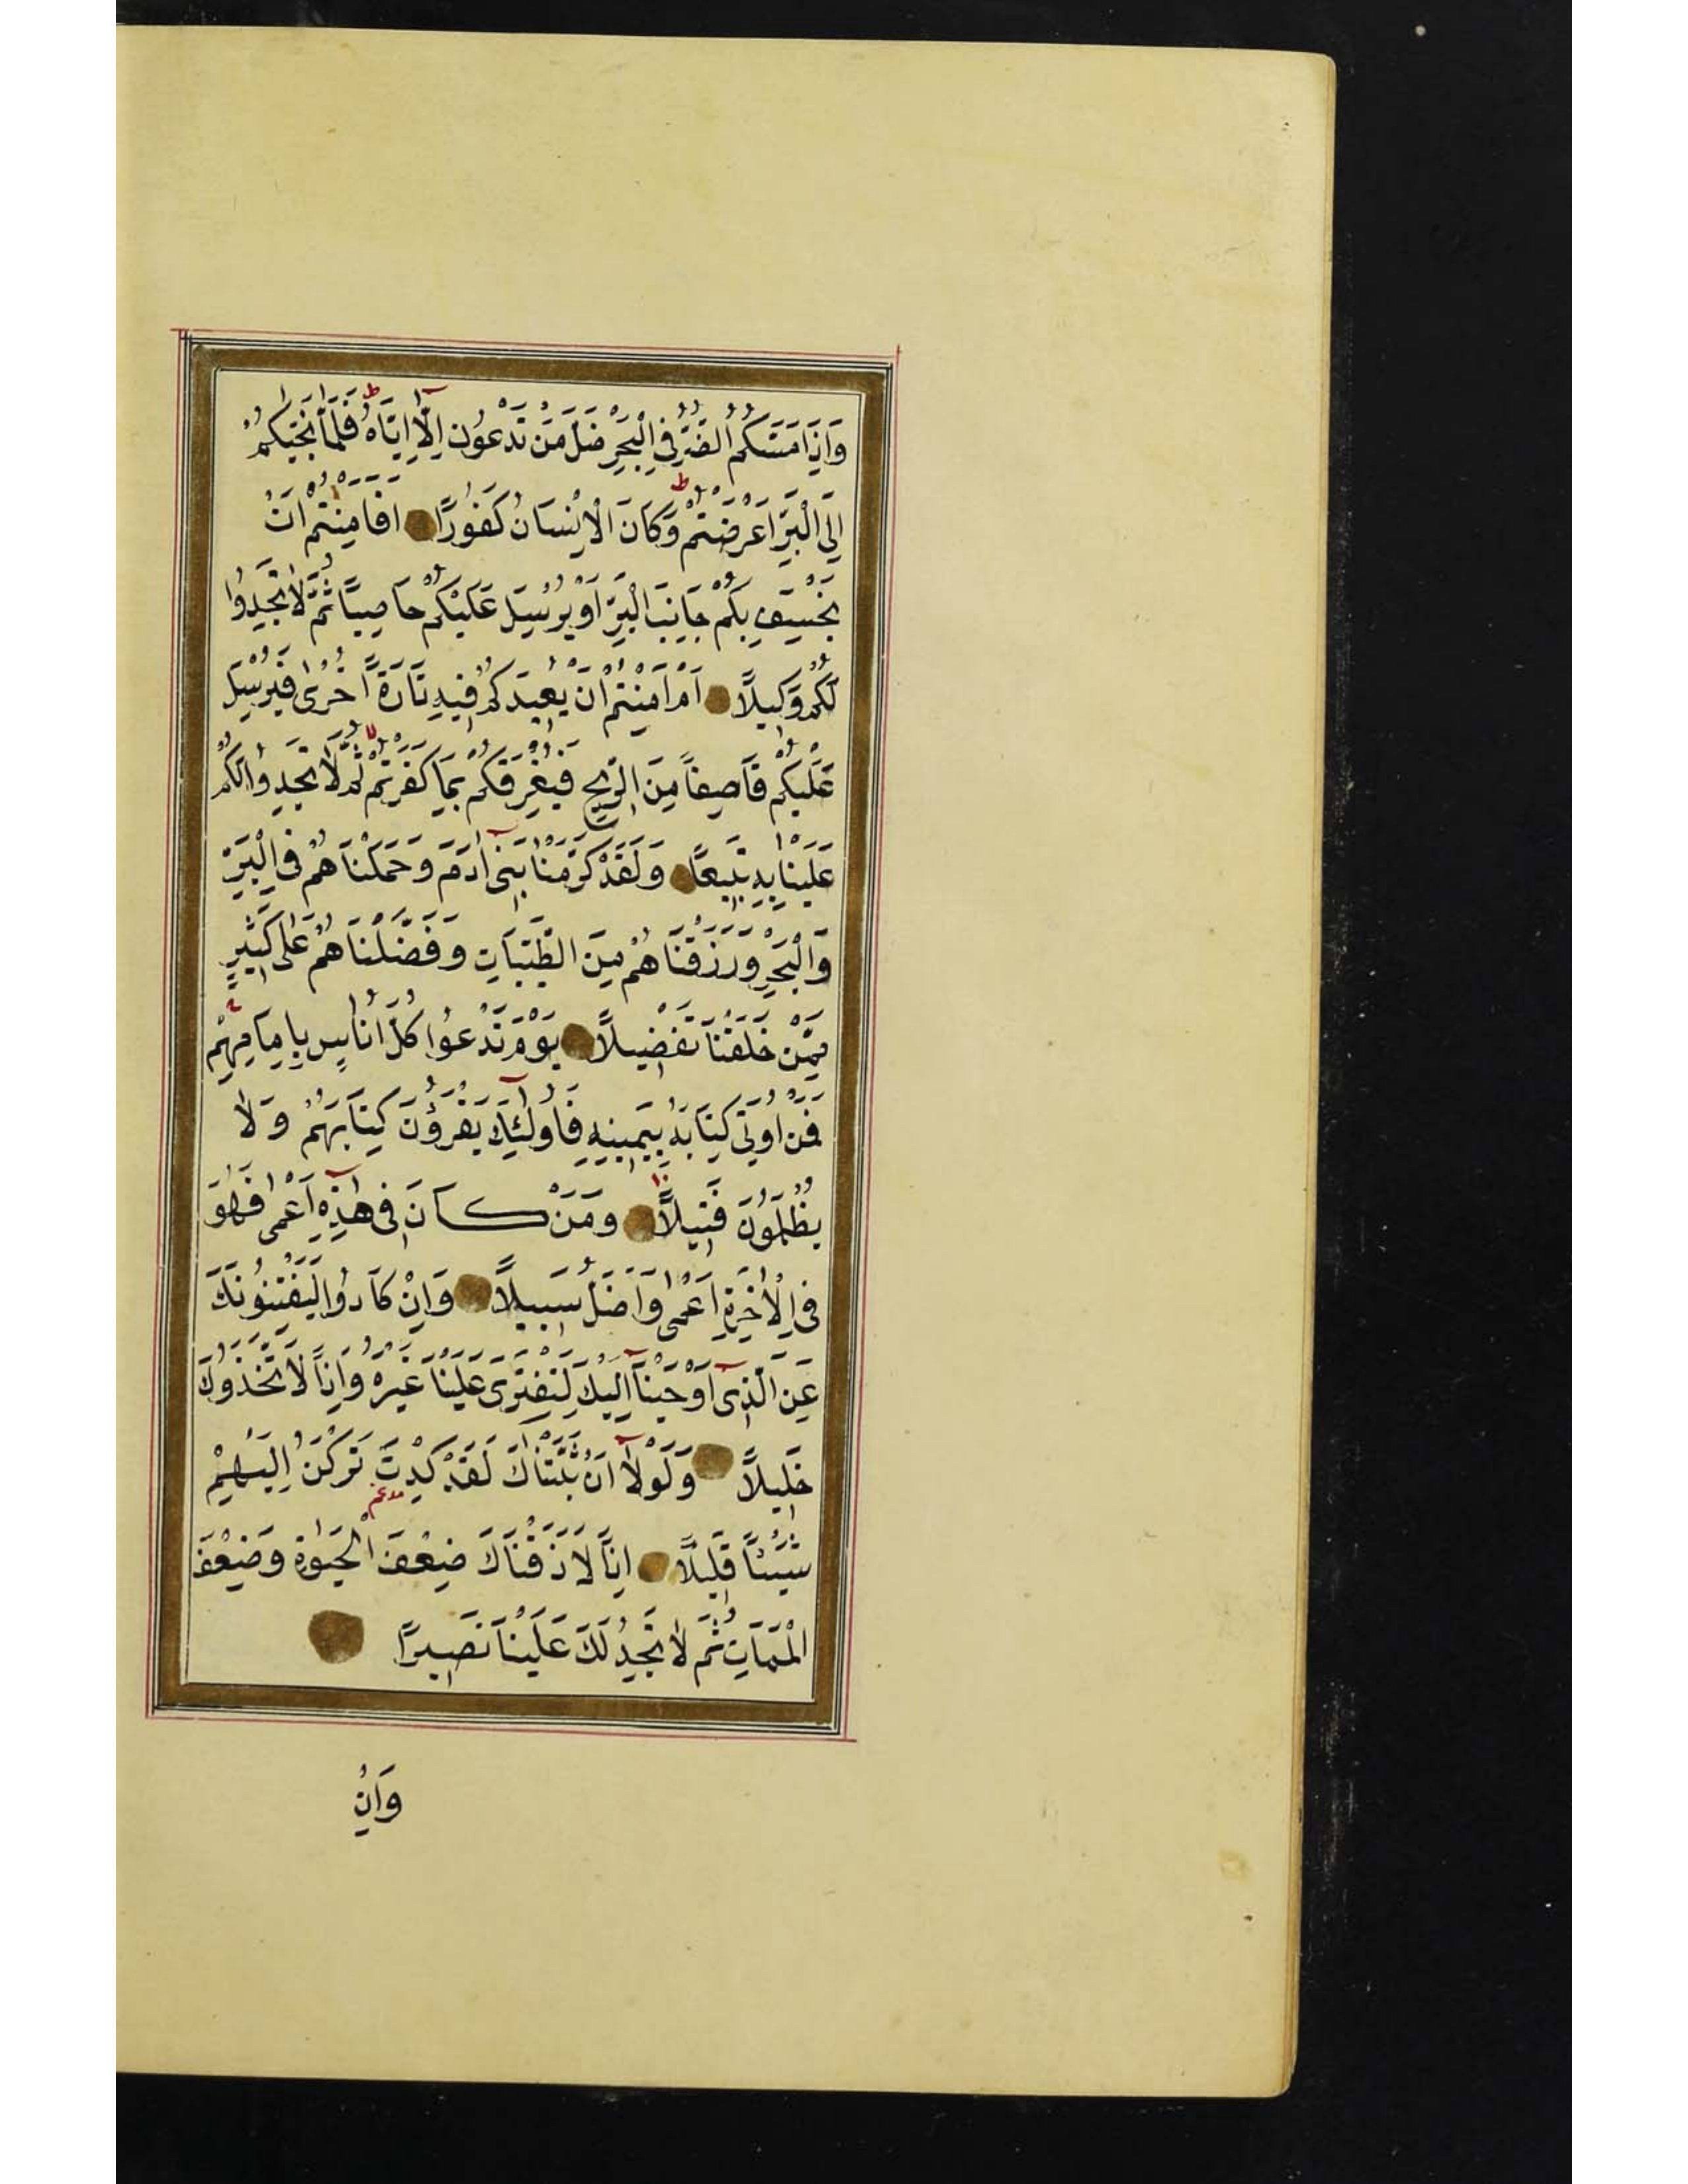 وَاِذَا مَسَّكُمُ الضُّرُّ فِي الْبَحْرِ ضَلَّ مَنْ تَدْعُونَ اِلَّٓا اِيَّاهُ ط فَلَمَّا نَجّٰيكُمْ
اِلَى الْبَرِّ اَعْرَضْتُمْ ط وَكَانَ الْاِنْسَانُ كَفُورًا اَفَاَمِنْتُمْ اَنْ
يَخْسِفَ بِكُمْ جَانِبَ الْبَرِّ اَوْ يُرْسِلَ عَلَيْكُمْ حَاصِبًا ثُمَّ لَا تَجِدُوا
لَكُمْ وَكِيلًا اَمْ اَمِنْتُمْ اَنْ يُعِيدَكُمْ فِيهِ تَارَةً اُخْرٰى فَيُرْسِلَ
عَلَيْكُمْ قَاصِفًا مِنَ الرِّيحِ فَيُغْرِقَكُمْ بِمَا كَفَرْتُمْ لا ثُمَّ لَا تَجِدُوا لَكُمْ
عَلَيْنَا بِهِ تَبِيعًا وَلَقَدْ كَرَّمْنَا بَنِٓى اٰدَمَ وَحَمَلْنَاهُمْ فِي الْبَرِّ
وَالْبَحْرِ وَرَزَقْنَاهُمْ مِنَ الطَّيِّبَاتِ وَفَضَّلْنَاهُمْ عَلٰى كَثِيرٍ
مِمَّنْ خَلَقْنَا تَفْضِيلًا يَوْمَ نَدْعُوا كُلَّ اُنَاسٍ بِاِمَامِهِمْ
فَمَنْ اُوتِىَ كِتَابَهُ بِيَمِينِهِ فَاُولٰٓئِكَ يَقْرَؤُنَ كِتَابَهُمْ وَلَا
يُظْلَمُونَ فَتِيلًا وَمَنْ كَانَ فِى هٰذِهِٓ اَعْمٰى فَهُوَ
فِى الْاٰخِرَةِ اَعْمٰى وَاَضَلُّ سَبِيلًا وَاِنْ كَادُوا لَيَفْتِنُونَكَ
عَنِ الَّذِٓى اَوْحَيْنَٓا اِلَيْكَ لِتَفْتَرِىَ عَلَيْنَا غَيْرَهُ وَاِذًا لَاتَّخَذُوكَ
خَلِيلًا وَلَوْلَٓا اَنْ ثَبَّتْنَاكَ لَقَدْ كِدْتَ تَرْكَنُ اِلَيْهِمْ
شَيْئًا قَلِيلًا اِذًا لَاَذَقْنَاكَ ضِعْفَ الْحَيٰوةِ وَضِعْفَ
الْمَمَاتِ ثُمَّ لَا تَجِدُ لَكَ عَلَيْنَا نَصِيرًا
وَاِنْ